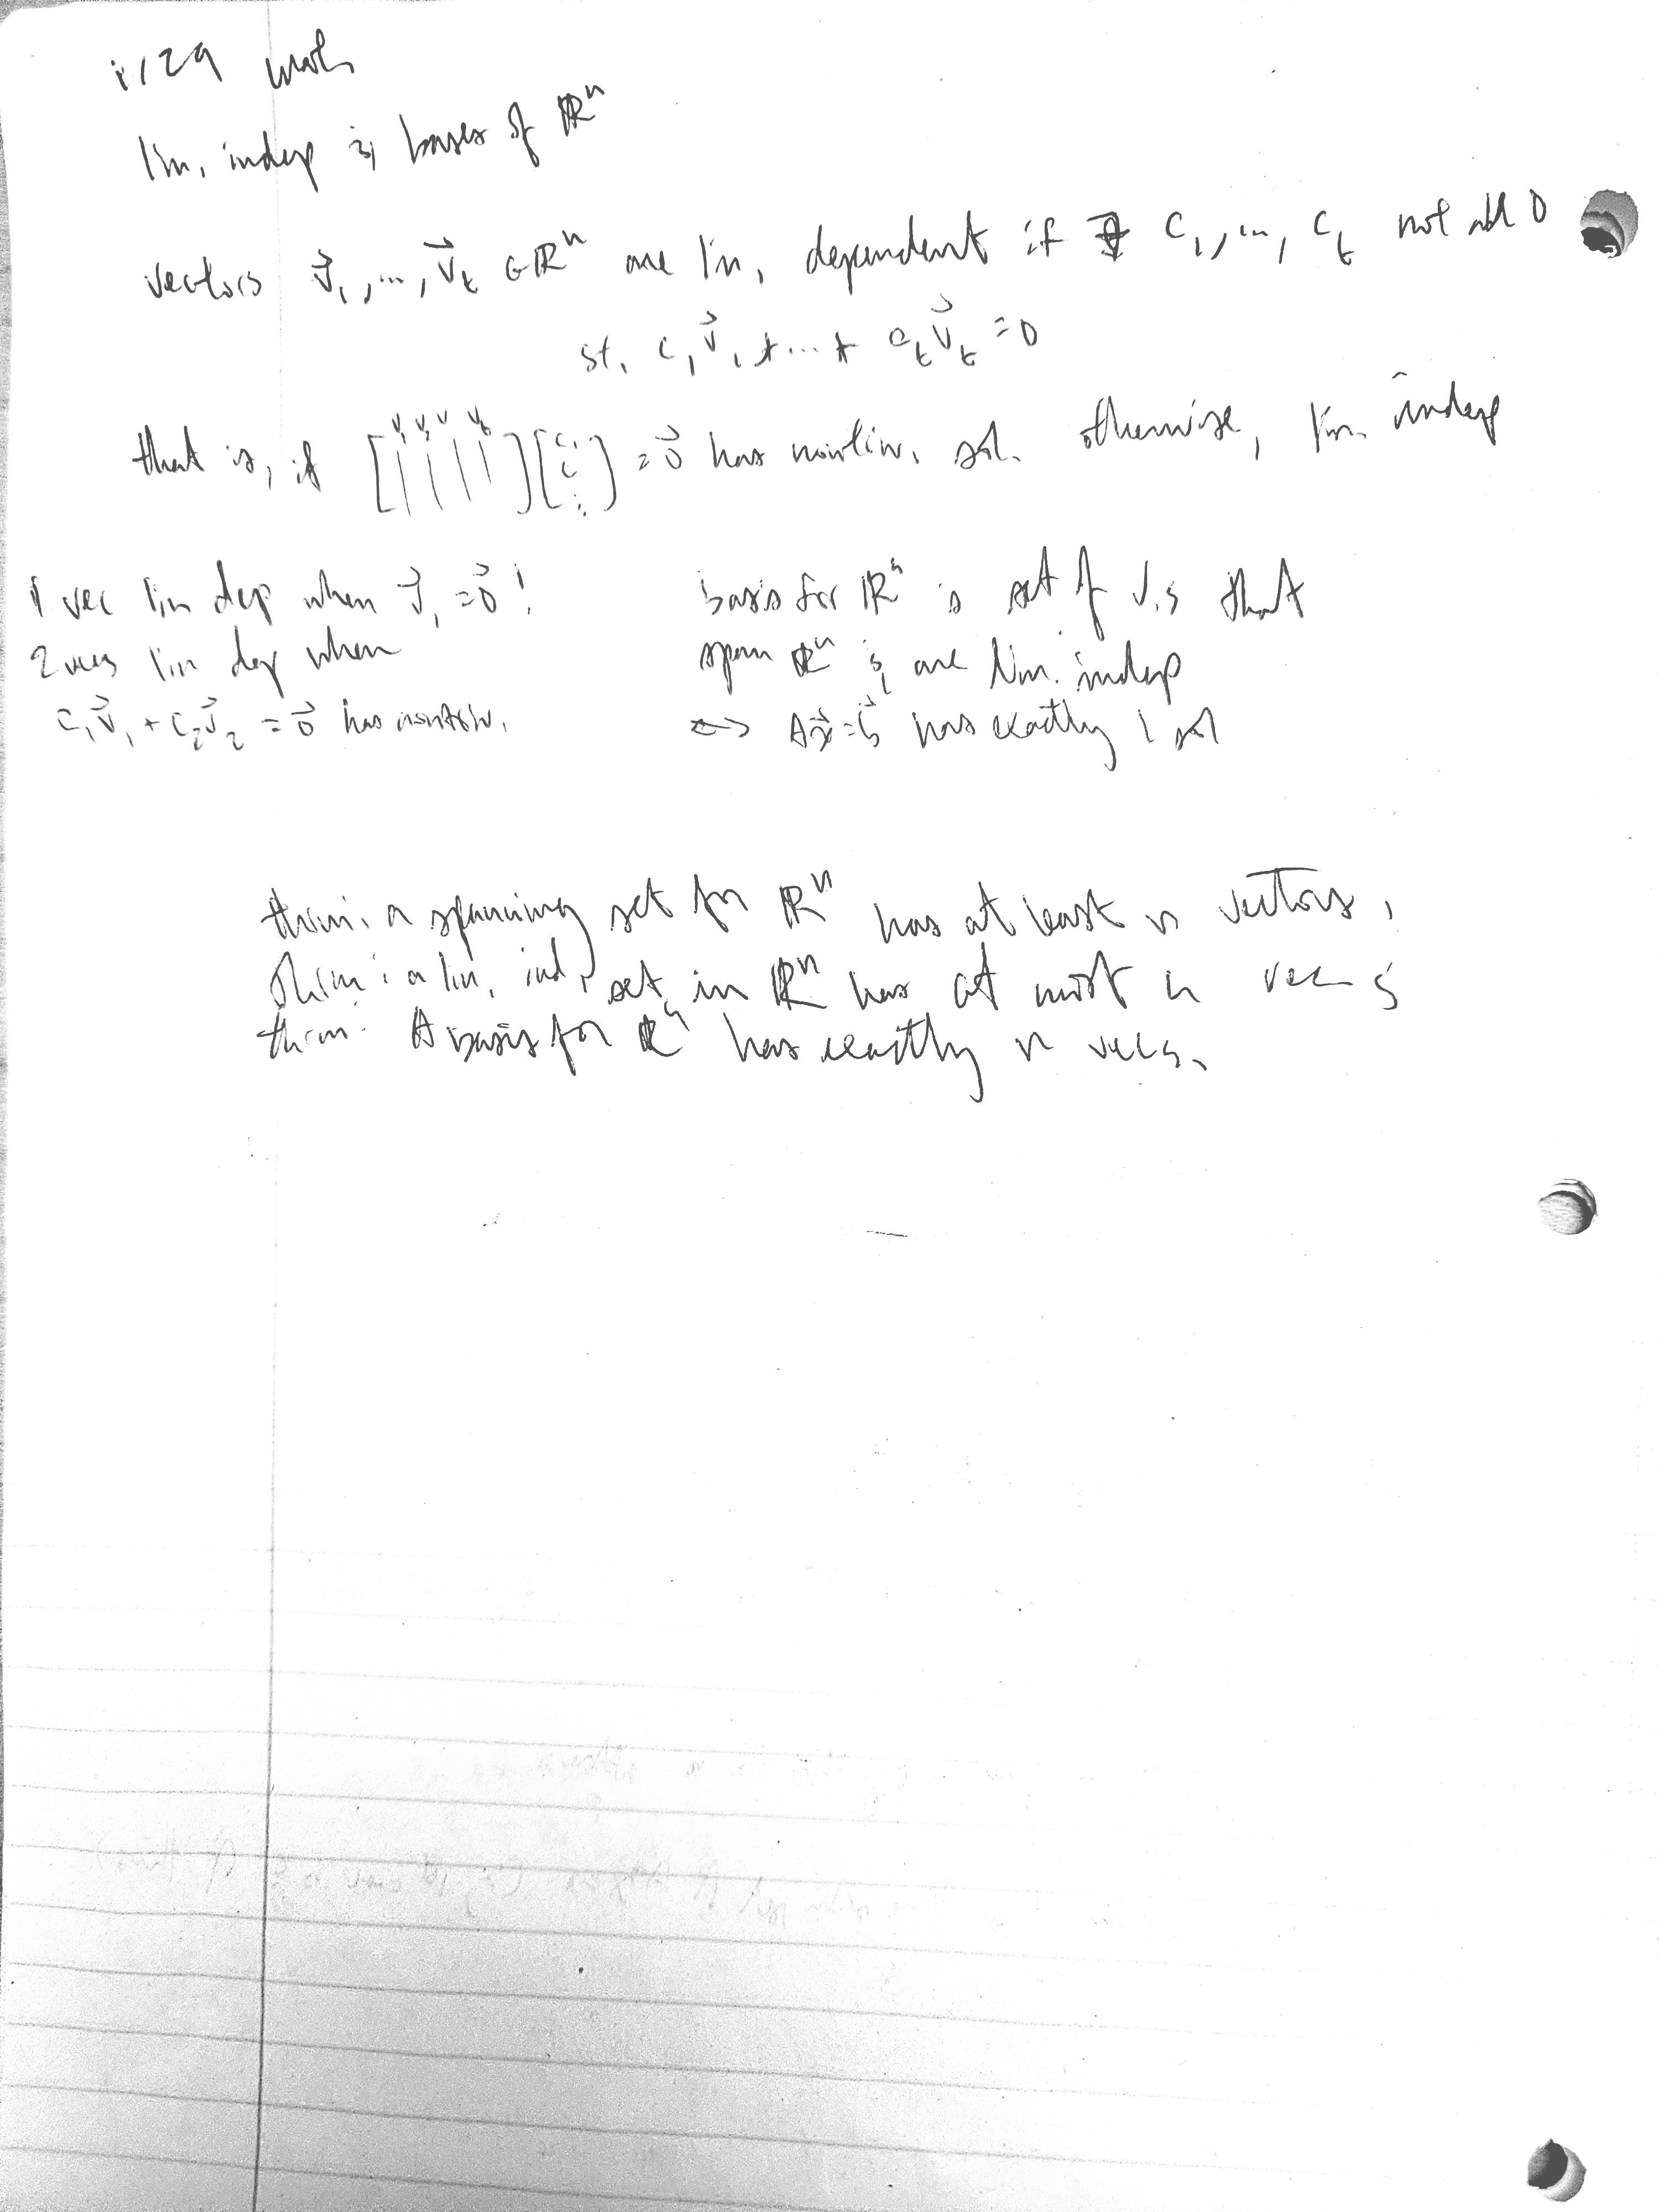 1/29 math
lin. indep & bases of ℝⁿ
vectors v⃗₁, ..., v⃗ₖ ∈ ℝⁿ are lin. dependent if ∃ c₁, ..., cₖ not all 0
st. c₁v⃗₁ + ... + cₖv⃗ₖ = 0
that is, if [| | | |][c₁ : ] = 0⃗ has nontriv. sol. otherwise, lin. indep
1 vec lin dep when v⃗₁ = 0⃗!
2 vecs lin dep when
c₁v⃗₁ + c₂v⃗₂ = 0⃗ has
basis for ℝⁿ is set of v.s that
span ℝⁿ & are lin. indep
⟺ Ax⃗ = b⃗ has exactly 1 sol
thm: a spanning set for ℝⁿ has at least n vectors.
thm: a lin. ind. set in ℝⁿ has at most n vecs
thm: A basis for ℝⁿ has exactly n vecs.